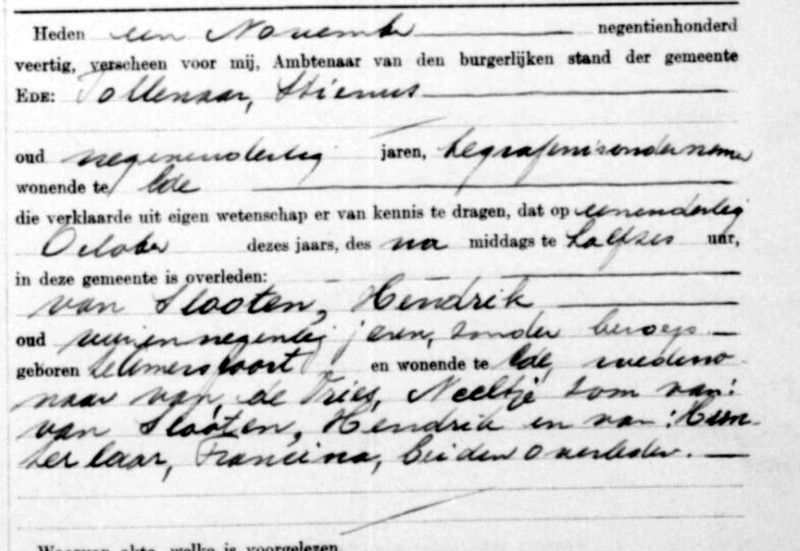 Heden een November negentienhonderd
veertig, verscheen voor mij, Ambtenaar van den burgerlijken stand der gemeente
EDE: Tollenaar, Stienus
oud negenendertig jaren, begrafenisondernemer
wonende te Ede
die verklaarde uit eigen wetenschap er van kennis te dragen, dat op eenendertig
October dezes jaars, des na middags te halfzes uur,
in deze gemeente is overleden:
van Slooten, Hendrik
oud jaren, zonder beroep
geboren te Amersfoort en wonende te Ede, weduwe-
naar van de Vries, Neeltje zoon van:
van Slooten, Hendrik en van:
laar, Francina, beiden overleden.
Waarvan akte, welke is voorgelezen.